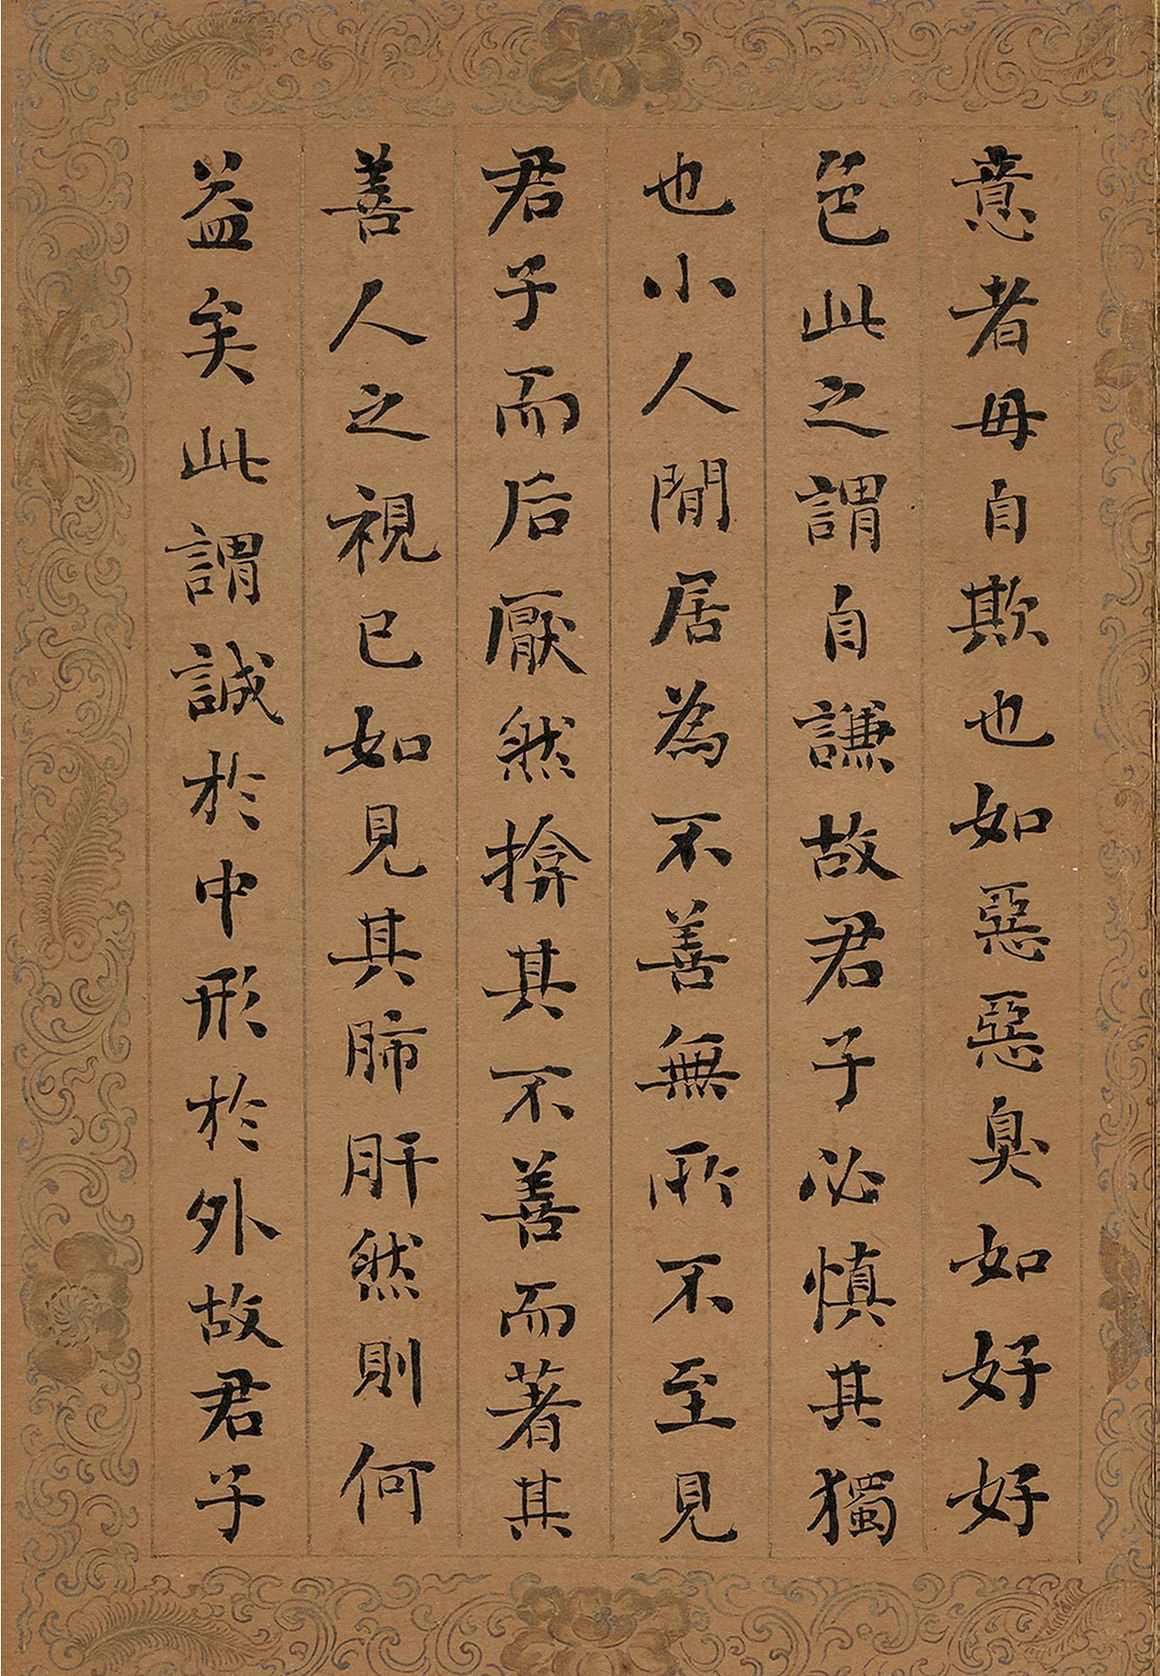 意者毋自欺也如惡惡臭如好好
色此之謂自謙故君子必慎其獨
也小人閒居為不善無所不至見
君子而后厭然揜其不善而著其
善人之視己如見其肺肝然則何
益矣此謂誠於中形於外故君子